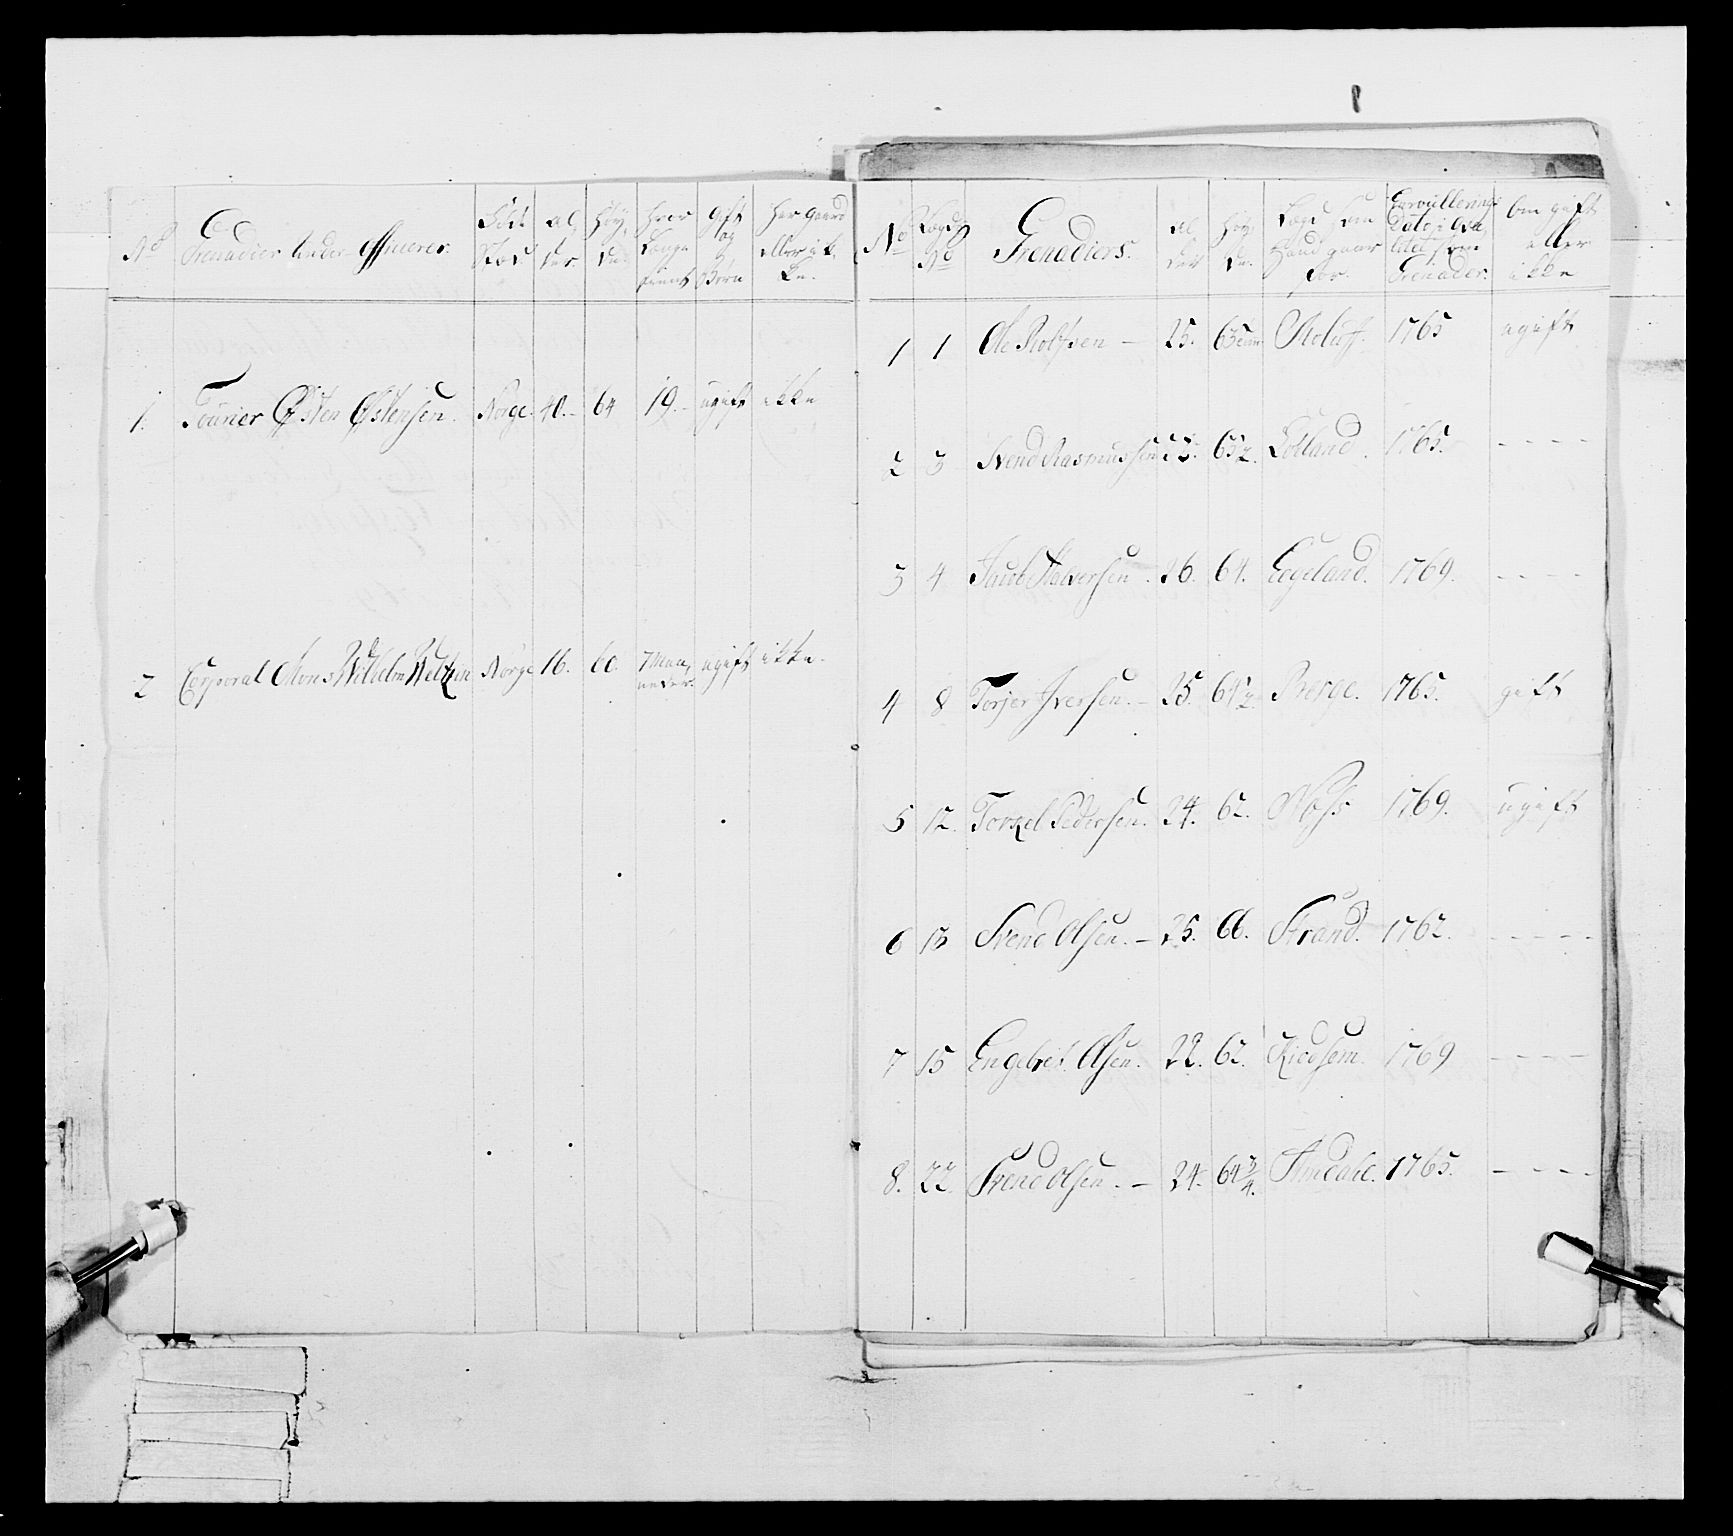 No Grenadier Under Officerer. Föde Stæd al, der. Höy, de. hvor Længe tient gift og Börn har gaard eller ik, ke.
1. Fourier Østen Østensen. Norge. 40. 64 19. ugift ikke
2 Corporal Mons Wilhelm Norge 16. 60. 7 Maa, neder. ugift ikke.
No Lægds No Grenadiers. al der Höy, de. Lægd som Hand gaar for. Enroullerings Dato i Qva, litet som Grenader. Om gift eller ikke
1 1 Ole Rolfsen 25. 1765 ugift
2 3 Svend Rasmussen 65 1/2. 1765. - - - -
3 4 Jacob Halversen. 26. 64. Eegeland. 1769. - - - -
4 8 Torjer Iversen. 25. 64 1/2. Berge. 1765. gift
5 12. Torkel Pedersen. 24. 62. 1769. ugift
6 13 Svend Olsen. 25. 66. Strand. 1762. - - - -
7 15 Engebret Olsen. 22. 62. 1769 - - - -
8. 22 Svend Olsen. 24. 64 3/4. Amdahl. 1765. - - - -